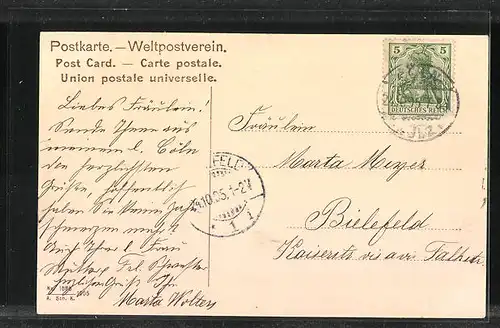 Postkarte. — Weltpostverein.
Post Card. — Carte postale.
Union postale universelle.
Liebes Fräulein!
Sende Ihnen aus
meinem l. Cöln
den herzlichsten
Grüße, hoffentlich
haben Sie keine Zahn
schmerzen mehr!
Auch Ihrer l. Frau
Mutter, Frl.
herzlichen Gruß Ihr
Marta Wolters
1905
A. Sch. K.
5 5
DEUTSCHES REICH
FELD
10.05. 1-2
1 i
Fräulein
Marta Meyer
Bielefeld
Kaiserstr. vis a vis